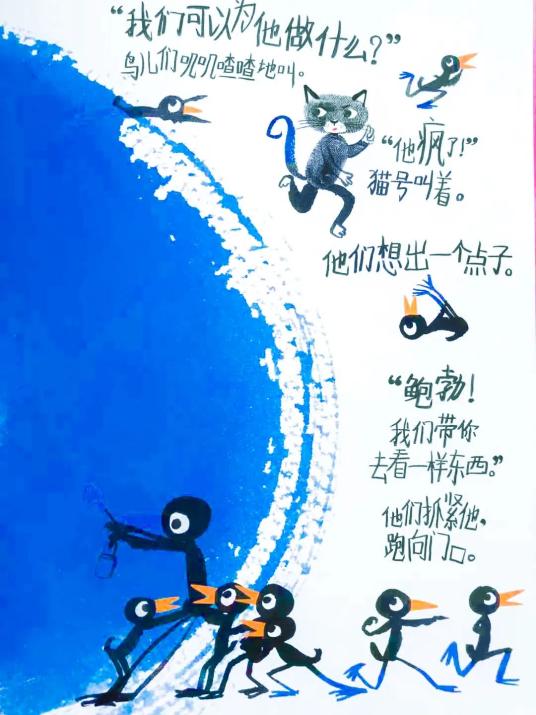 “我们可以为他做什么？”
鸟儿们叽叽喳喳地叫。
“他疯了！”
猫号叫着。
他们想出一个点子。
“鲍勃！
我们带你
去看一样东西。”
他们抓紧他，
跑向门口。